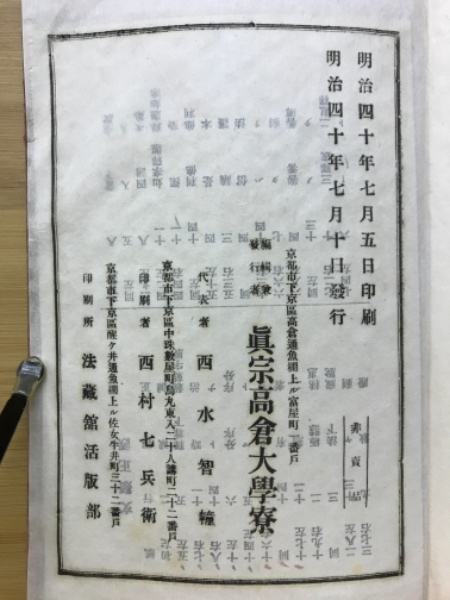 明治四十年七月五日印刷
明治四十年七月十日發行
非賣品
京都市下京區高倉通魚棚上ル富屋町一番戶
編輯兼
發行者
眞宗高倉大學寮
代表者 西水智幢
京都市下京區中珠數屋町烏丸東入二十人講町二十二番戶
印刷者 西村七兵衛
京都市下京區醒ケ井通魚棚上ル佐女牛井町三十二番戶
印刷所 法藏館活版部